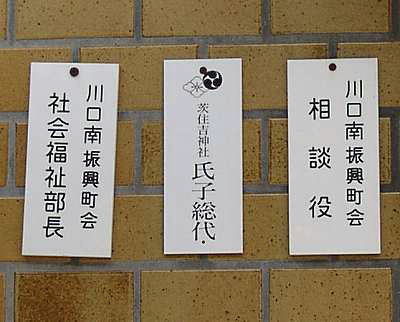 川口南振興町会
相談役
茨住吉神社
氏子総代
川口南振興町会
社会福祉部長